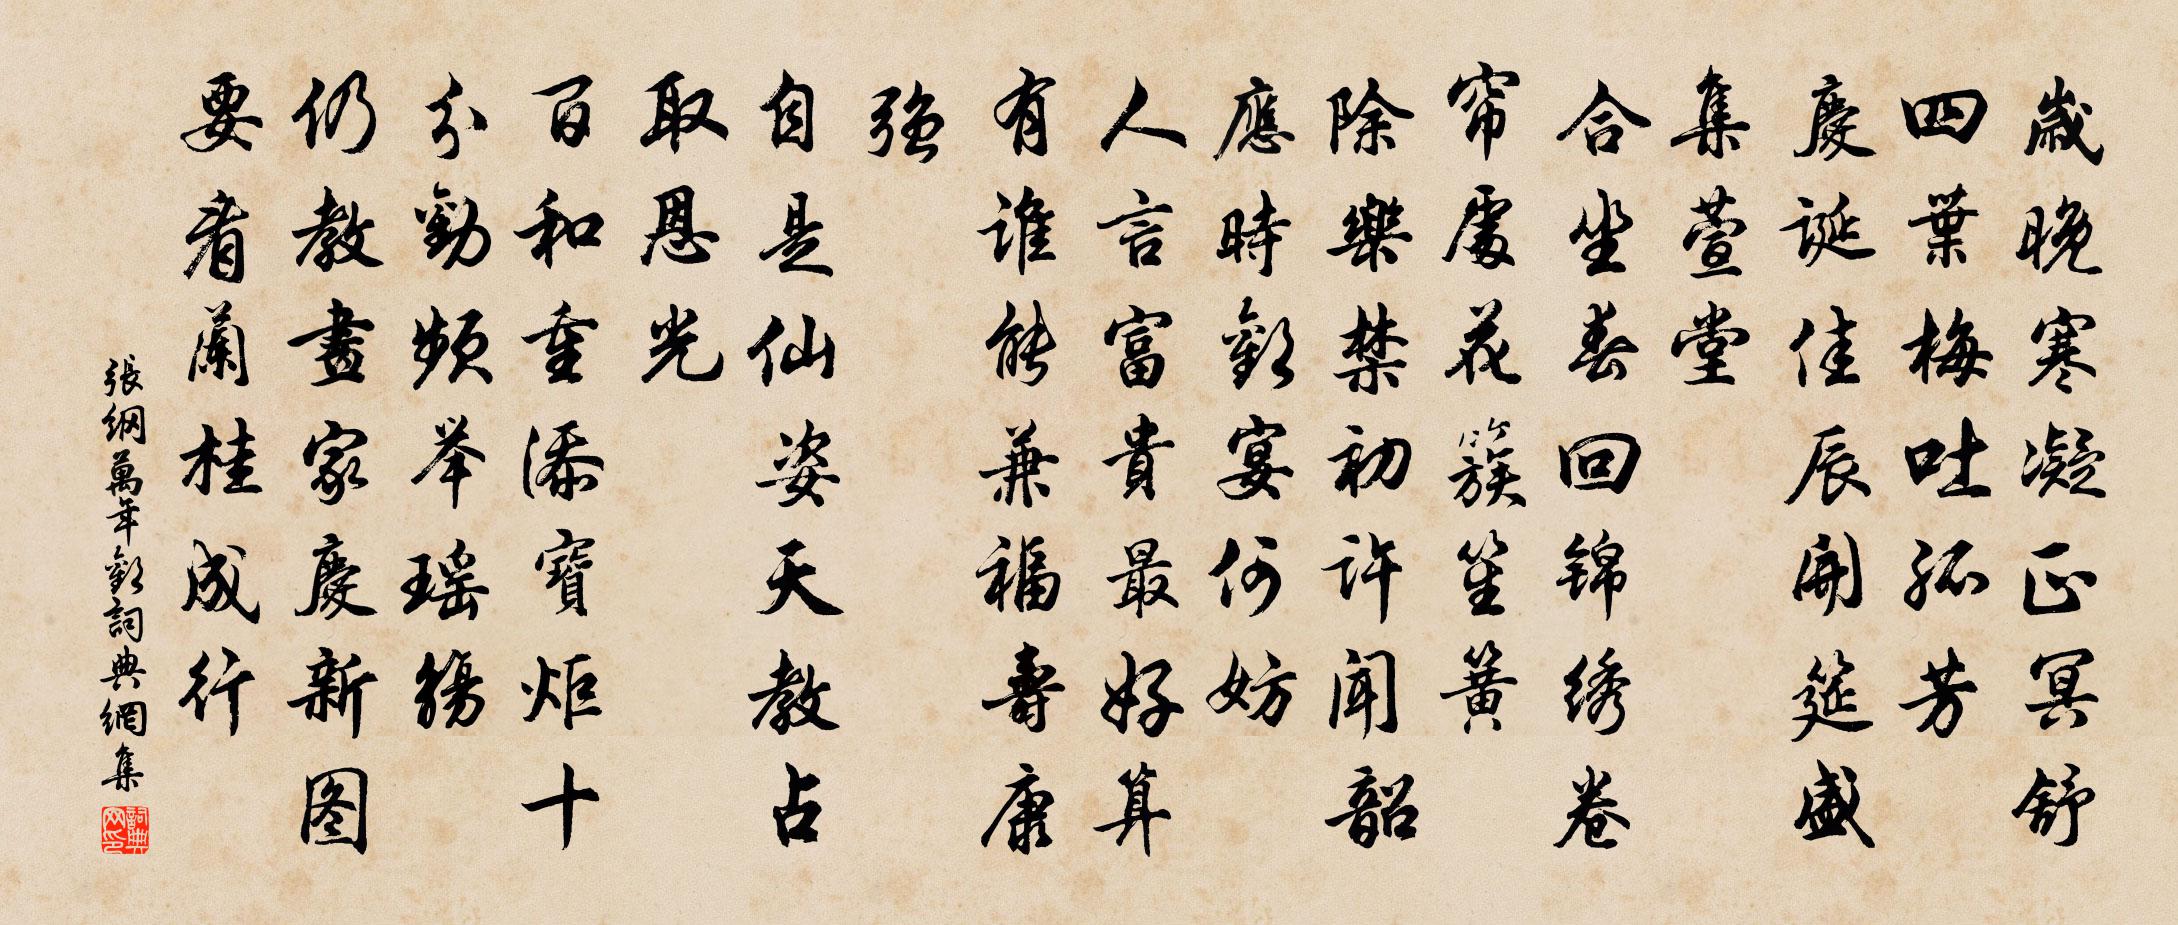 歲晚寒凝正冥舒
四葉梅吐孤芳
慶誕佳辰開筵盛
集萱堂
合坐春回锦绣卷
帘處花簇笙簧
除樂禁初许闻韶
應時歡宴何妨
人言富貴最好算
有谁能兼福壽康
强
自是仙姿天教占
取恩光
百和重添寶炬十
分勸頻举瑶觴
仍教畫家慶新图
要看蘭桂成行
張纲萬年歡詞典網集
詞典网印